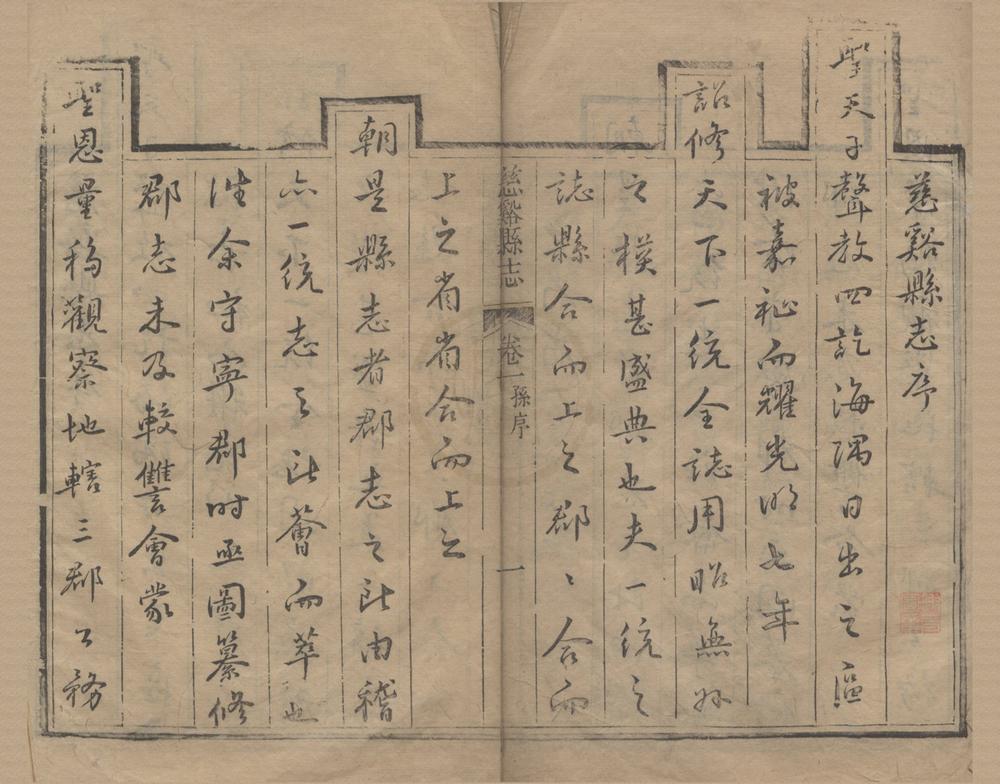 慈谿縣志序
聖天子聲教四訖海隅日出之區
被嘉祉而耀光明七年
詔修天下一統全誌用昭無外
之模甚盛典也夫一統之
誌縣合而上之郡〻合而
慈谿縣志 卷一 孫序 一
上之省省合而上之
朝是縣志者郡志之所由稽
亦一統志之所薈而萃也
往余守寧郡時亟圖纂修
郡志未及較讐會蒙
聖恩量移觀察地轄三郡公務